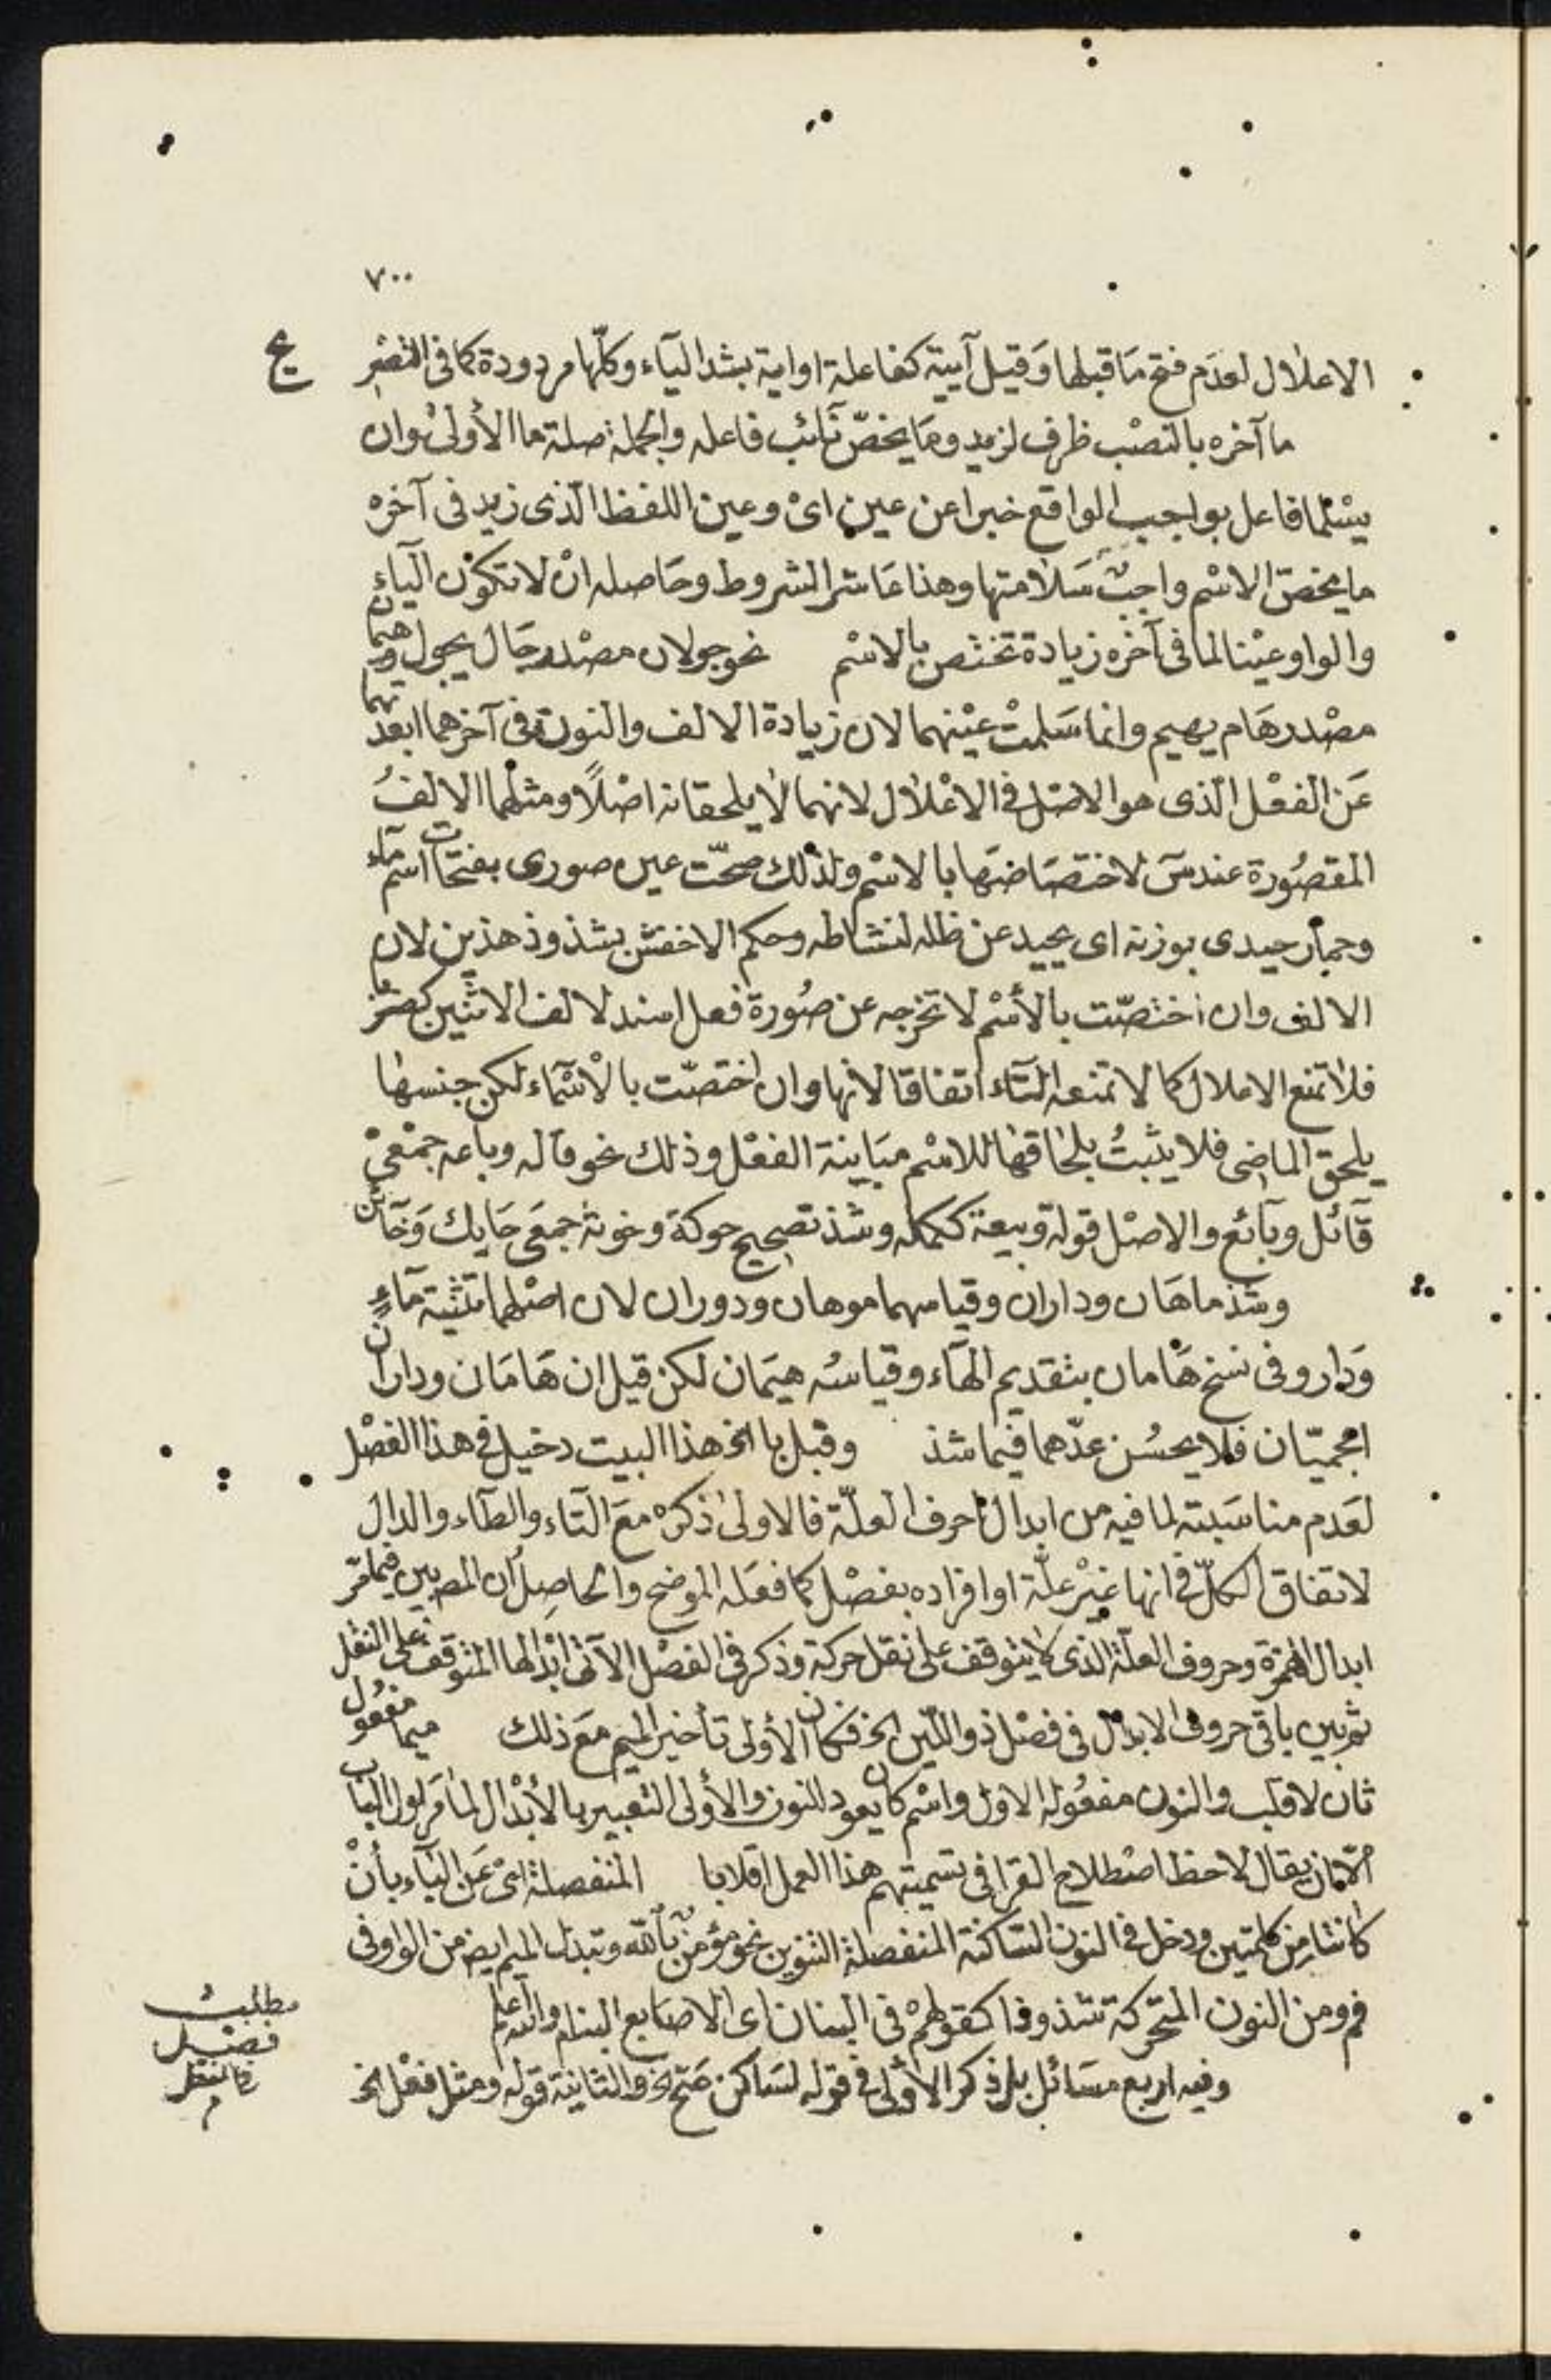 ٧٠٠
الاعلال لعدَم فتح مَا قبلها وَقيل آيية كفاعلة او اية بشد الياء وكلّها مردودة كما فى التصْرِ
يح
ما آخره بالنصْب ظرف لزيد ومَا يخصّ نَائب فاعله والجملة صلة ما الأولىٰ وان
يسْلما فاعل بواجب الواقع خبرا عن عين اىْ وعين اللفظ الّذى زيد فى آخره
ما يخصّ الاسْم واجبٌ سَلامتها وهذا عَاشر الشروط وحَاصله انْ لا تكوْن الياء
والواو عيْنا لما فى آخره زيادة تختص بالاسْم نحو جولان مصْدر جَال يجول وهيمان
مصْدر هَام يهيم وانما سَلمتْ عيْنهما لان زيادة الالف والنون فى آخرهما ابعدتهما
عَن الفعْل الّذى هو الاصْل فى الاعْلال لانهما لا يلحقانه اصْلاً ومثلهما الالفُ
المقصُورة عند سَ لاختصَاصَها بالاسْم ولذلك صحّت عين صورى بفتحات اسْم ماء
وحمار حيدى بوزنه اى يحيد عن ظله لنشاطه وحكم الاخفش بشذوذ هذين لان
الالف وان اختصّت بالأسْم لا تخرجه عن صُورة فعل اسند لالف الاثنين كضربا
فلا تمنع الاعلال كما لا تمنعه التاء اتفاقا لانها وان اختصّت بالأسْمَاء لكن جنسها
يلحق الماضى فلا يثبتُ بلحَاقها للاسْم مبَاينة الفعْل وذلك نحو قاله وباعه جمْعىْ
قَائل وبَائع والاصْل قولة وبيعة ككملة وشذ تصحيح حوكة وخونة جمعَى حَايك وَخَائن
وشذ ماهَان وداران وقياسهما موهان ودوران لان اصْلهما تثنية مَاءٍ
وَدار وفى نسخ هَامان بتقديم الهَاء وقياسُه هيَمان لكن قيل ان هَامَان وداران
اعجميّان فلا يحسُن عدّهما فيما شذ وقبل با الخ هذا البيت دخيل فى هذا الفصْل
لعَدم مناسَبته لما فيه من ابدال احرف العلّة فالاولىٰ ذكرهْ معَ التاء والطاء والدال
لاتفاق الكلّ فى انها غيْر علّة او افراده بفصْل كما فعَله الموضح والحاصِل أن المص بين فيما مَرّ
ابدال الهمزة وحروف العلّة الذى لا يتوقف على نقل حركة وذكر فى الفصْل الآتى ابْدالها المتوقف على النقل
ثم بين باقى حروف الابدال فى فصْل ذو اللّين الخ فكان الأولى تأخير الميم معَ ذلك ميما مفعول
ثان لاقلب والنون مفعُوله الاول واسْم كان يعود للنون والأولى التعبير بالأبْدال لما مَر لول الباب
الّا ان يقال لاحظ اصْطلاح القرا فى تسميتهم هذا العمل اقلابا المنفصلة اىْ عَن البَاء بأنْ
كانتا من كلمتين ودخل فى النون السّاكنة المنفصلة التنوين نحو مؤمنٌ بالله وتبدل الميم ايض من الواو فى
فم ومن النون المتحركة شذوذا كقولهمْ فى البنان اى الاصَابع البنام والله اعلم
وفيه اربع مسَائل بل ذكر الأولى فى قوله لسَاكن صَح الخ والثانية قوله ومثل فعْل الخ
مطلبُ
فصْل
فانظر
م